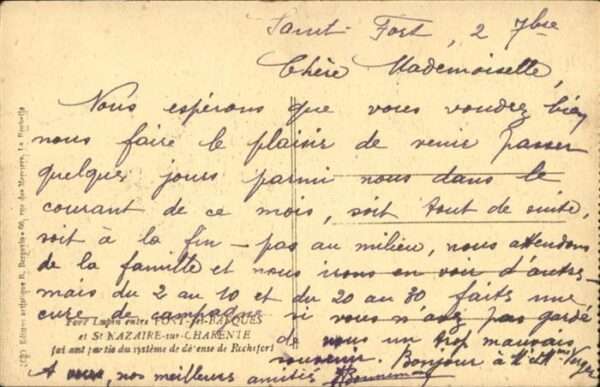 Saint-Fort, 2 7bre
Chère Mademoiselle,
Nous espérons que vous voudrez bien
nous faire le plaisir de venir passer
quelques jours parmi nous dans le
courant de ce mois, soit tout de suite,
soit à la fin — pas au milieu, nous attendons
de la famille et nous irons en voir d'autres
mais du 2 au 10 et du 20 au 30 faits une
cure de campagne si vous n'avez pas gardé
de nous un trop mauvais
souvenir. Bonjour à M et Mme
A vous, nos meilleurs amitiés
Fort Lupin entre PORT-des-BARQUES
et St NAZAIRE-sur-CHARENTE
fait partie du système de défense de Rochefort
Edition artistique R. Bergevin 66, rue des Merciers, La Rochelle